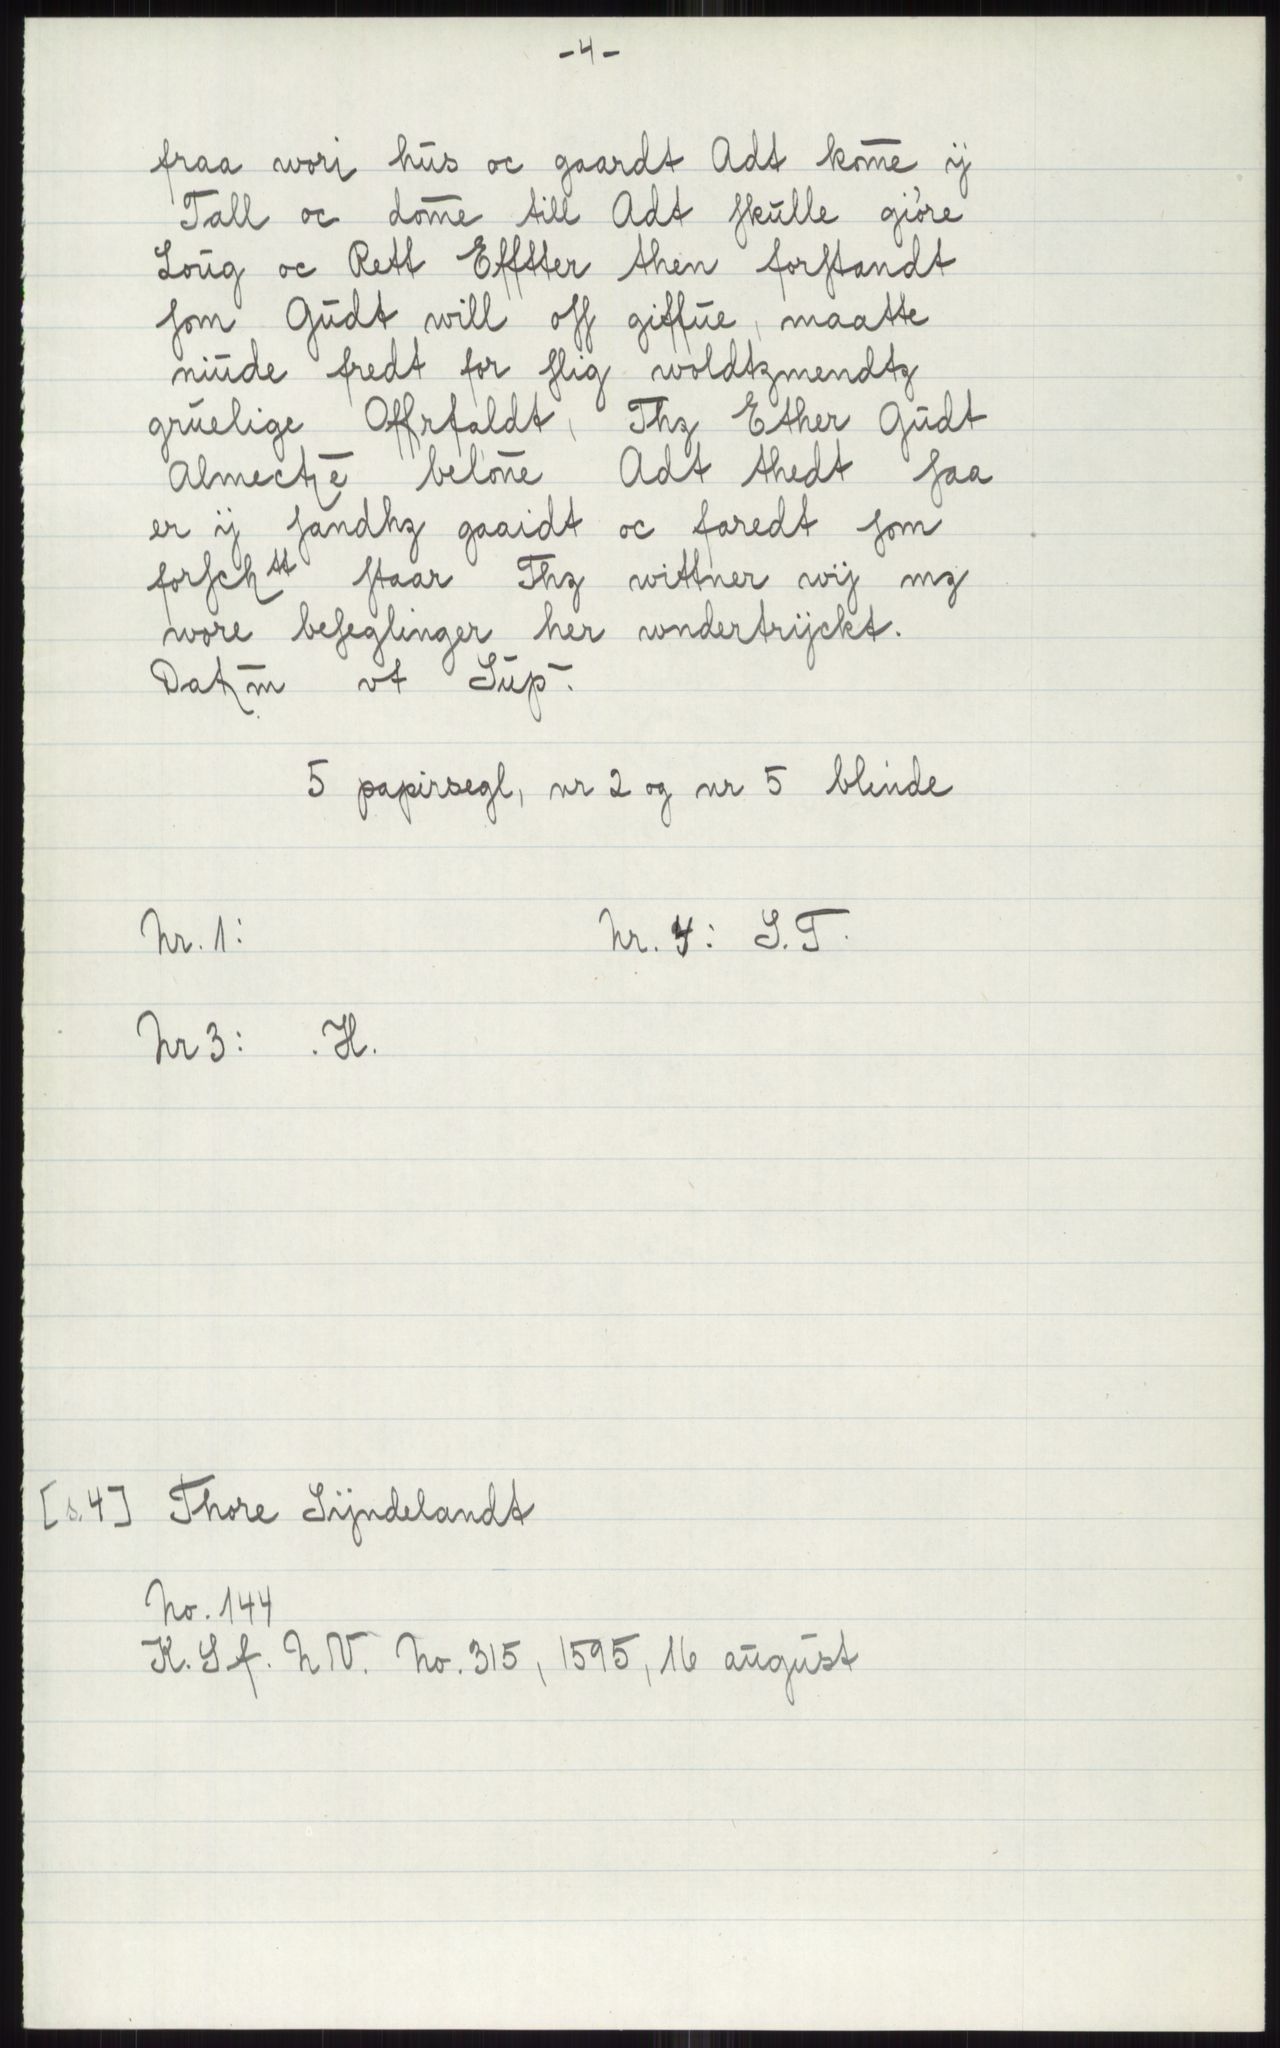 -4-
fraa worj hus oc gaardt Adt kom̄e ij
Tall oc dom̄e till Adt skulle giøre
Loug oc Rett Efftter then forstandt
som Gudt will oss giffue, maatte
niude fredt for slig woldtzmendtz
gruelige Offrfaldt, Thz Ether Gudt
Almectꝛē beløn̄e Adt thedt saa
er ij sandhz gaaidt oc faredt som
forschꝛtt staar Thz wittner wij mz
wore beseglinger her wndertrijckt.
Datꝛm̄ vt Sup̄.
5 papirsegl, nr 2 og nr 5 blinde
Nr. 1:
Nr. 4: S.T.
Nr 3: .H.
[s.4] Thore Sijndelandt
No. 144
K.S f. N V. No. 315, 1595, 16 august